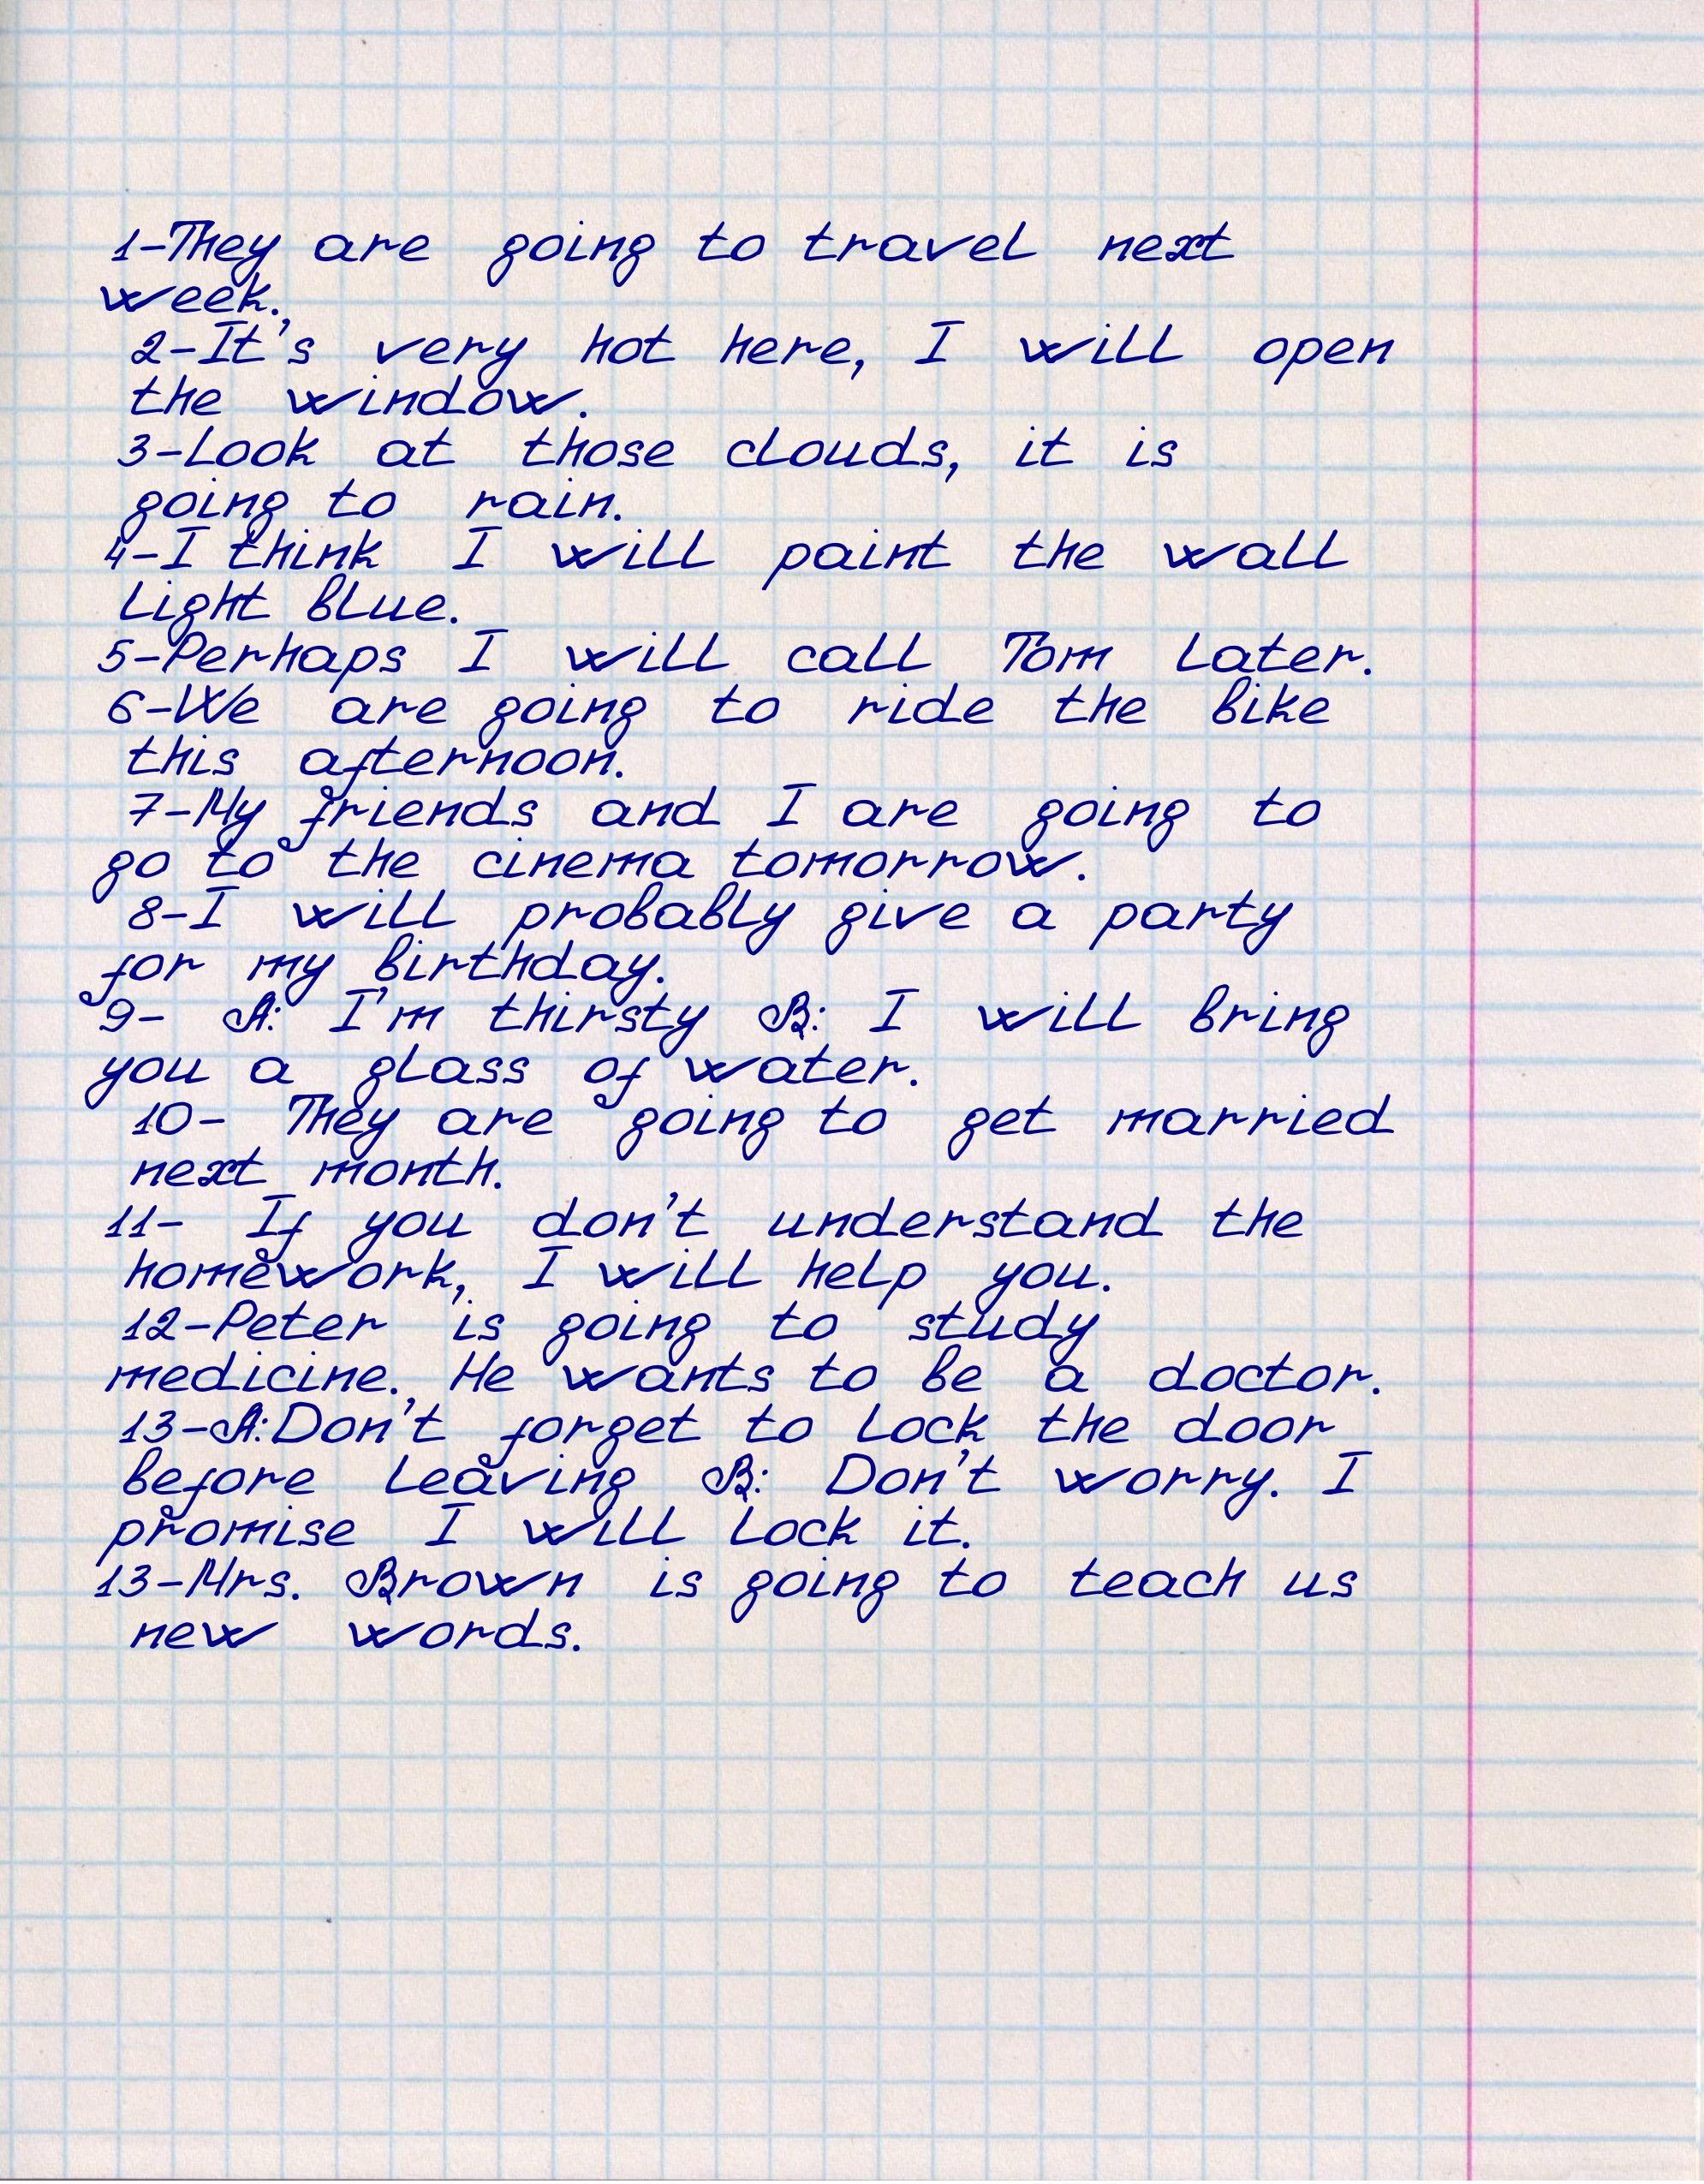 1-They are going to travel next
week.
2-It's very hot here, I will open
the window.
3-Look at those clouds, it is
going to rain.
4-I think I will paint the wall
light blue.
5-Perhaps I will call Tom later.
6-We are going to ride the bike
this afternoon.
7-My friends and I are going to
go to the cinema tomorrow.
8-I will probably give a party
for my birthday.
9- A: I'm thirsty B: I will bring
you a glass of water.
10- They are going to get married
next month.
11- If you don't understand the
homework, I will help you.
12-Peter is going to study
medicine. He wants to be a doctor.
13-A:Don't forget to lock the door
before leaving B: Don't worry. I
promise I will lock it.
13-Mrs. Brown is going to teach us
new words.